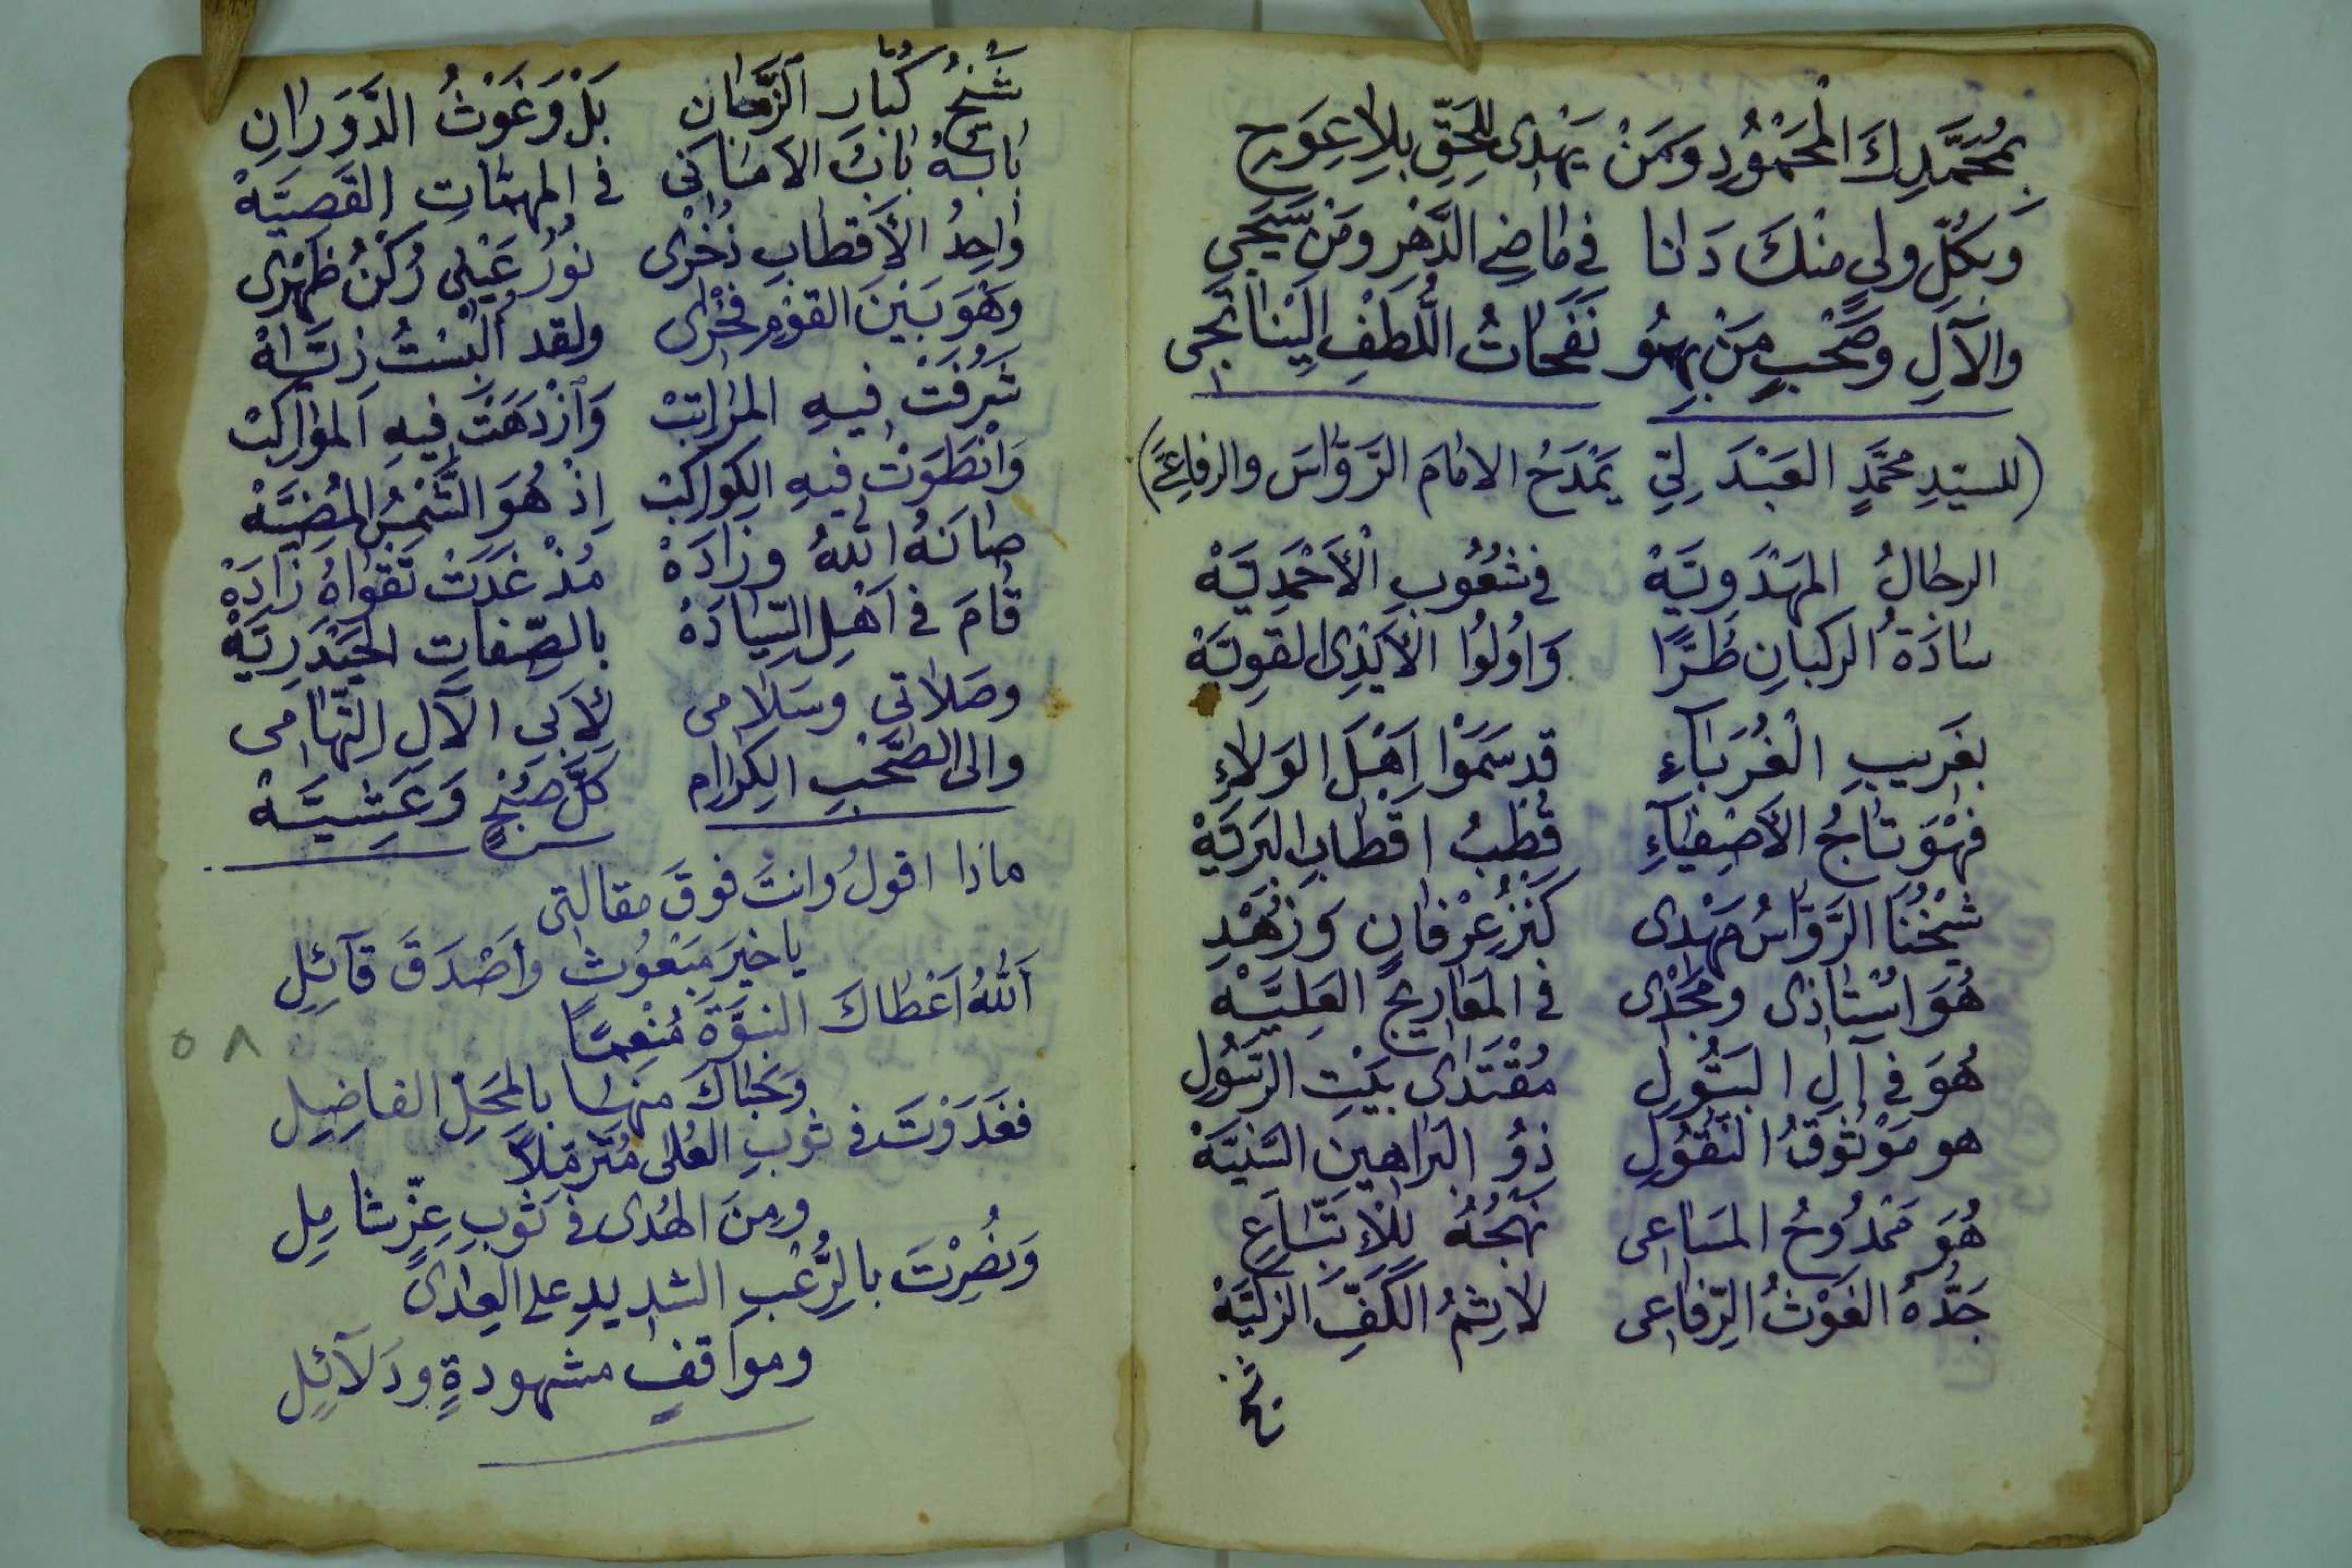 بِمُحَمَّدِكَ الْمَحْمُودِ وَمَنْ يَهْدِى لِلْحَقِّ بِلاٰ عِوَجِ
وَبِكُلِّ ولىٍ مِنْكَ دَنٰا فِى مٰاضِى الدَّهْرِ وَمَنْ سَيَجِى
والآلِ وَصَحْبٍ مَنْ بِهِمُو نَفَحٰاتُ اللُّطْفِ اِلَيْنٰا تَجِى
(للسيّدِ محمَّدٍ العَبْدَ لِىّ يَمْدَحُ الامٰامَ الرَّوَّاسَ والرفاعىَّ)
الرجٰالُ المَهْدَوِيَّهْ فى شُعُوبِ الْأَحْمَدِيَّهْ
سٰادَةُ الركبٰانِ طُرًّا وَاُولُوا الأَيْدِى القَوِيَّهْ
بغَريبِ الْغُرَبٰآءِ قد سَمَوْا اَهْلَ الوَلاٰءِ
فَهْوَ تٰاجُ الأَصْفِيٰآءِ قُطْبُ اقْطٰابِ البَرِيَّهْ
شَيْخُنَا الرَّوَّاسُ مَهْدِى كَنْزُ عِرْفٰانٍ وَزُهْدِ
هُوَ اسْتٰاذى ومَجْدى فى المَعٰاريجِ العَلِيَّهْ
هُوَ فى آلِ البَتُولِ مُقْتَدٰى بَيْتِ الرَّسُولِ
هو مَوْثُوقُ النُّقُولِ ذُو البَرٰاهينِ السَّنِيَّهْ
هُوَ مَمْدُوحُ المَسٰاعى نَهْجُهُ لِلْاِتِّبٰاعِ
جَدُّهُ الغَوْثُ الرِّفٰاعى لاٰثِمُ الكَفِّ الزكيَّهْ
شيخ
شَيْخُ كُبّٰارِ الزَّمٰانِ بَلْ وَغَوْثُ الدَّوَرٰانِ
بٰابُهُ بٰابُ الامٰانى فى المهمّاتِ القَصِيَّهْ
وٰاحِدُ الأَقْطٰابِ ذُخْرى نُورُ عَيْنى رُكْنُ ظَهْرى
وَهُوَ بَيْنَ القَوْمِ فَخْرى ولقد اُلْبِسْتُ زِيَّهْ
شَرُفَتْ فيهِ المرٰاتِبْ وَازْدَهَتْ فيهِ المَوٰاكِبْ
وَانْطَوَتْ فيهِ الكَوٰاكِبْ اِذْ هُوَ الشَّمْسُ المُضِيَّهْ
صٰانَهُ اللهُ وزٰادَهْ مُذْ غَدَتْ تَقْوٰاهُ زٰادَهْ
قٰامَ فى اَهْلِ السِّيٰادَهْ بالصِّفٰاتِ الحَيْدَرِيَّهْ
وصَلاٰتى وسَلاٰمى لِأَبى الآلِ التِّهٰامى
والى الصَّحْبِ الكِرٰامِ كلَّ صُبْحٍ وَعَشِيَّهْ
ماذا اقولُ وانتَ فوقَ مقالتى
يا خيرَ مَبْعُوثٍ وأَصْدَقَ قآئِلِ
اَللهُ اَعْطٰاكَ النبُوَّةَ مُنْعِمًا
وَحَبٰاكَ منها بالمَحَلِّ الفاضِلِ
فغَدَوْتَ فى ثوبِ العُلى مُتَزمّلاً
ومِنَ الهُدى فى ثَوبِ عِزٍّ شامِلِ
وَنُصِرْتَ بالرُّعْبِ الشديدِ على العِدٰى
ومواقفٍ مشهودةٍ ودَلآئِلِ
٥٨